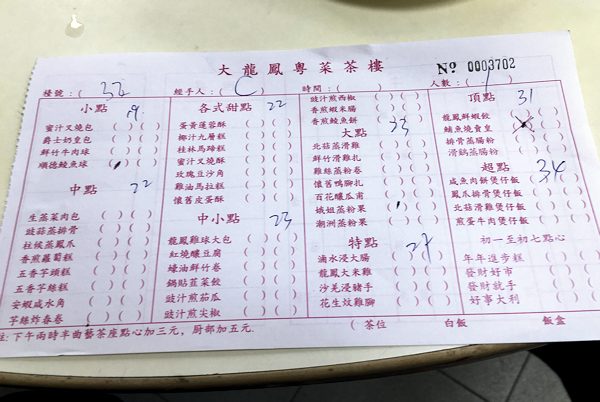 大龍鳳粵菜茶樓 № 0003702
檯號:( 32 ) 經手人:( C ) 時間:( ) 人數:( 1 )
小點 19
蜜汁叉燒包 ( ) ( )
爵士奶皇包 ( ) ( )
鮮竹牛肉球 ( ) ( )
順德鯪魚球 ( ) ( )
中點 22
生蒸菜肉包 ( ) ( )
豉蒜蒸排骨 ( ) ( )
柱候蒸鳳爪 ( ) ( )
香煎蘿蔔糕 ( ) ( )
五香芋頭糕 ( ) ( )
五香芋絲糕 ( ) ( )
安蝦咸水角 ( ) ( )
芋絲炸春卷 ( ) ( )
各式甜點 22
蛋黃蓮蓉酥 ( ) ( )
椰汁九層糕 ( ) ( )
桂林馬蹄糕 ( ) ( )
蜜汁叉燒酥 ( ) ( )
玫瑰豆沙角 ( ) ( )
雞油馬拉糕 ( ) ( )
懷舊皮蛋酥 ( ) ( )
中小點 23
龍鳳雞球大包 ( ) ( )
紅燒釀豆腐 ( ) ( )
蠔油鮮竹卷 ( ) ( )
鍋貼韮菜餃 ( ) ( )
豉汁煎茄瓜 ( ) ( )
豉汁煎尖椒 ( ) ( )
豉汁煎西椒 ( ) ( )
香煎蝦米腸 ( ) ( )
香煎鯪魚餅 ( ) ( )
大點 23
北菇蒸滑雞 ( ) ( )
鮮竹滑雞扎 ( ) ( )
雞絲蒸粉卷 ( ) ( )
懷舊鴨腳扎 ( ) ( )
百花釀瓜甫 ( ) ( )
娥姐蒸粉果 ( ) ( )
潮洲蒸粉果 ( ) ( )
特點 27
滷水浸大腸 ( ) ( )
龍鳳大米雞 ( ) ( )
沙羌浸豬手 ( ) ( )
花生炆雞腳 ( ) ( )
頂點 31
龍鳳鮮蝦餃 ( ) ( )
鮑魚燒賣皇 ( ) ( )
排骨蒸腸粉 ( ) ( )
滑鷄蒸腸粉 ( ) ( )
超點 34
咸魚肉餅煲仔飯 ( ) ( )
鳳爪排骨煲仔飯 ( ) ( )
北菇滑雞煲仔飯 ( ) ( )
煎蛋牛肉煲仔飯 ( ) ( )
初一至初七點心
年年進步糕 ( ) ( )
發財好市 ( ) ( )
發財就手 ( ) ( )
好事大利 ( ) ( )
註:下午兩時半曲藝茶座點心加三元,厨部加五元. ( 茶位 白飯 飯盒